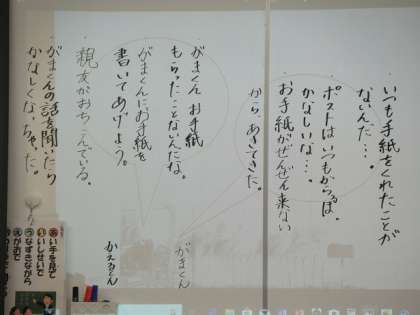 ・いつも手紙をくれたことが
ないんだ…。
・ポストはいつもからっぽ。
かなしいな…。
・お手紙がぜんぜん来ない
から、あきてきた。
・がまくん お手紙
もらったことないんだな。
・がまくんにお手紙を
書いてあげよう。
・親友がおちこんでいる。
・がまくんの話を聞いたら
かなしくなっちゃった。
がまくん
かえるくん
あい手を見て
いいしせいで
うなずきながら
えがおで